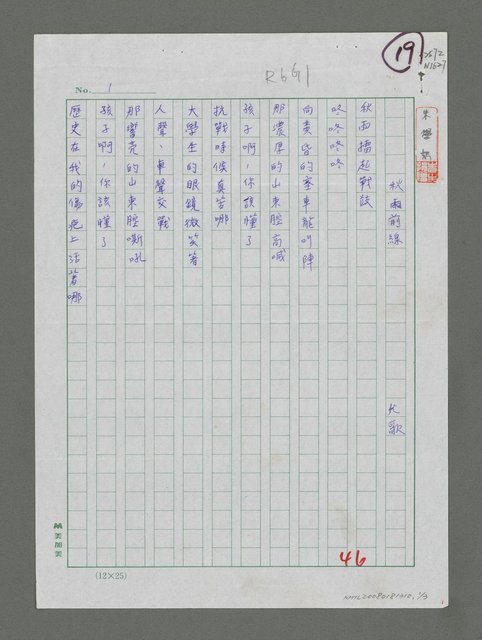 19
R661
No. 1
秋雨前線 大歌
秋雨擂起戰鼓
咚咚咚咚
向黃昏的塞車龍叫陣
那濃厚的山東腔高喊
孩子啊，你該懂了
抗戰時候真苦哪
大學生的眼鏡微笑著
人聲、車聲交戰
那響亮的山東腔嘶吼
孩子啊，你該懂了
歷史在我的傷疤上活著哪
46
美加美
(12×25)